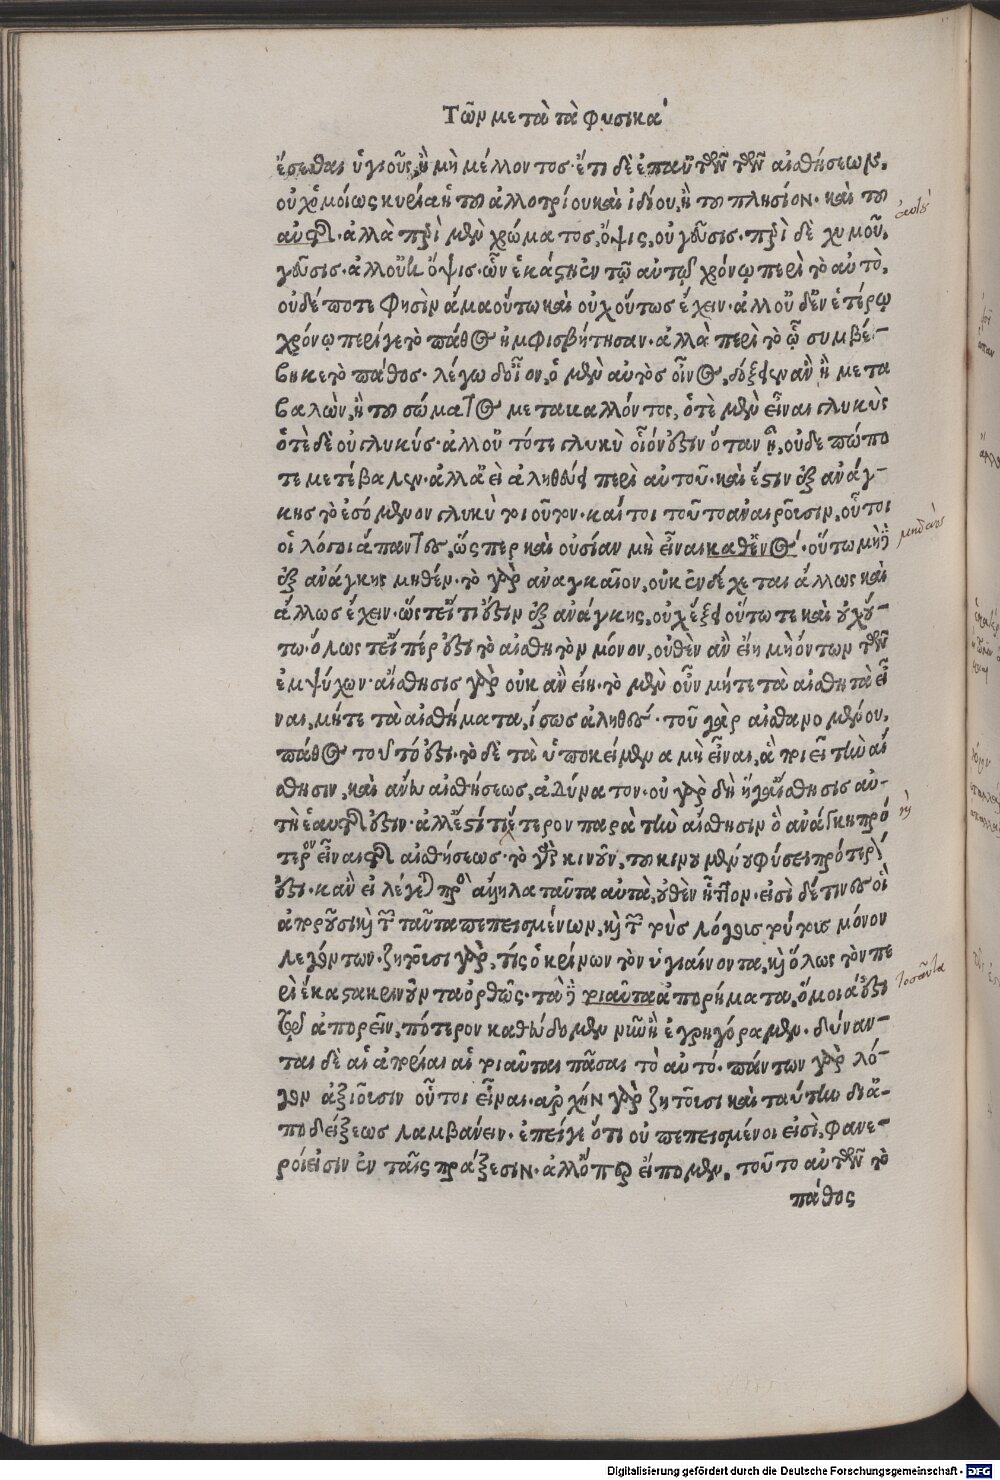 Τῶν μετὰ τὰ φυσικά
ἔσεσθαι ὑγιοῦς, ἢ μὴ μέλλοντος. ἔτι δὲ ἐπ αὐτῶν τῶν αἰσθήσεων,
οὐχ ὁμοίως κυρία ἡ τοῦ ἀλλοτρίου καὶ ἰδίου, ἢ τοῦ πλησίον. καὶ τοῦ
αὐτῆς. ἀλλὰ περὶ μὲν χρώματος, ὄψις, οὐ γεῦσις. περὶ δὲ χυμοῦ,
γεῦσις. ἀλλ οὐκ ὄψις. ὧν ἑκάστη ἐν τῷ αὐτῷ χρόνῳ περὶ τὸ αὐτὸ,
οὐδέποτε φησὶν ἅμα οὕτω καὶ οὐχ οὕτως ἔχειν. ἀλλ οὐδ ἐν ἑτέρῳ
χρόνῳ περί γε τὸ πάθος ἠμφισβήτησαν. ἀλλὰ περὶ τὸ ᾧ συμβέ-
βηκε τὸ πάθος. λέγω δ οἷον, ὁ μὲν αὐτὸς οἶνος, δόξειεν ἂν ἢ μετα
βαλὼν, ἢ τοῦ σώματος μεταβαλλόντος, ὁτὲ μὲν εἶναι γλυκὺς
ὁτὲ δὲ οὐ γλυκύς. ἀλλ οὔ τότε γλυκὺ οἷόν ἐστιν ὅταν ᾖ, οὐδεπώπο
τε μετέβαλεν. ἀλλ ἀεὶ ἀληθεύει περὶ αὐτοῦ. καὶ ἔστιν ἐξ ἀνάγ-
κης τὸ ἐσόμενον γλυκὺ τοιοῦτον. καίτοι τοῦτο ἀναιροῦσιν, οὗτοι
οἱ λόγοι ἅπαντες, ὥσπερ καὶ οὐσίαν μὴ εἶναι καθ ἑνὸς. οὕτω μηδ
ἐξ ἀνάγκης μηθέν. τὸ γὰρ ἀναγκαῖον, οὐκ ἐνδέχεται ἄλλως καὶ
ἄλλως ἔχειν. ὥστ εἴ τι ἐστὶν ἐξ ἀνάγκης, οὐχ ἕξει οὕτω τε καὶ οὐχ οὕ-
τω. ὅλως τ εἴπερ ἐστὶ τὸ αἰσθητὸν μόνον, οὐθὲν ἂν εἴη μὴ ὄντων τῶν
ἐμψύχων. αἴσθησις γὰρ οὐκ ἂν εἴη. τὸ μὲν οὖν μήτε τὰ αἰσθητὰ εἶ
ναι, μήτε τὰ αἰσθήματα, ἴσως ἀληθές. τοῦ γὰρ αἰσθανομένου,
πάθος τοῦτό ἐστι. τὸ δὲ τὰ ὑποκείμενα μὴ εἶναι, ἃ ποιεῖ τὴν αἴ
σθησιν, καὶ ἄνευ αἰσθήσεως, ἀδύνατον. οὐ γὰρ δὴ ἥ γ αἴσθησις αὐ-
τὴ ἑαυτῆς ἐστιν. ἀλλ ἔστί τι ἕτερον παρὰ τὴν αἴσθησιν ὃ ἀνάγκη πρό
τερον εἶναι τῆς αἰσθήσεως. τὸ γὰρ κινοῦν, τοῦ κινουμένου φύσει πρότερόν
ἐστι. κἂν εἰ λέγεται πρὸς ἄλληλα ταῦτα αὐτὰ, οὐθὲν ἧττον. εἰσὶ δέ τινες οἳ
ἀποροῦσι καὶ τῶν ταῦτα πεπεισμένων, καὶ τῶν τοὺς λόγους τούτους μόνον
λεγόντων. ζητοῦσι γὰρ, τίς ὁ κρίνων τὸν ὑγιαίνοντα, καὶ ὅλως τὸν πε
ρὶ ἕκαστα κρινοῦντα ὀρθῶς. τὰ δὲ τοιαῦτα ἀπορήματα, ὅμοιά ἐστι
τῷ ἀπορεῖν, πότερον καθεύδομεν νῦν ἢ ἐγρηγόραμεν. δύναν-
ται δὲ αἱ ἀπορίαι αἱ τοιαῦται πᾶσαι τὸ αὐτό. πάντων γὰρ λό-
γον ἀξιοῦσιν οὗτοι εἶναι. ἀρχὴν γὰρ ζητοῦσι καὶ ταύτην δι ἀ-
ποδείξεως λαμβάνειν. ἐπεί γε ὅτι οὐ πεπεισμένοι εἰσὶ, φανε-
ροί εἰσιν ἐν ταῖς πράξεσιν. ἀλλ ὅπερ εἴπομεν, τοῦτο αὐτῶν τὸ
πάθος
μηδενὸς
τοσαῦτα
Digitalisierung gefördert durch die Deutsche Forschungsgemeinschaft - DFG